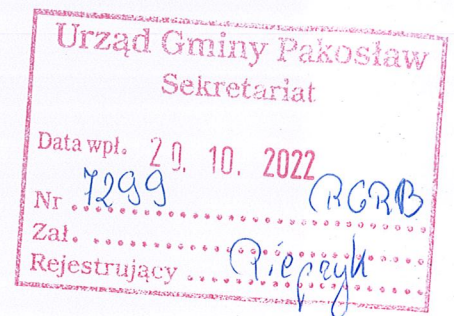 Urząd Gminy Pakosław
Sekretariat
Data wpł. 20. 10. 2022
Nr 7299 RGRB
Zał.
Rejestrujący